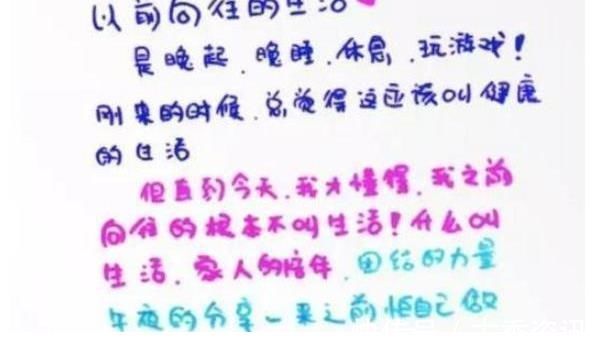 以前向往的生活
是晚起、晚睡、休息、玩游戏!
刚来的时候、总觉得这应该叫健康
的生活
但直到今天、我才懂得、我之前
向往的根本不叫生活!什么叫
生活、家人的陪伴、团结的力量
午夜的分享一来之前怕自己做